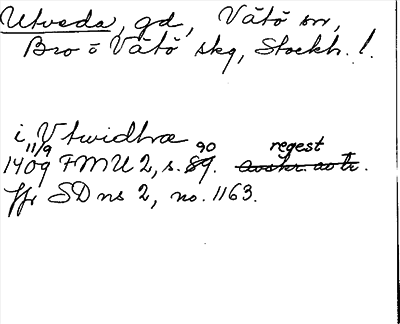 Utveda, gd, Vätö sn,
Bro o Vätö skg, Stockh. l.
i Vtwidhræ
11/9 90 regest
1409 FMU 2, s. 89. avskr. av tr.
Jfr SD ns 2, no. 1163.